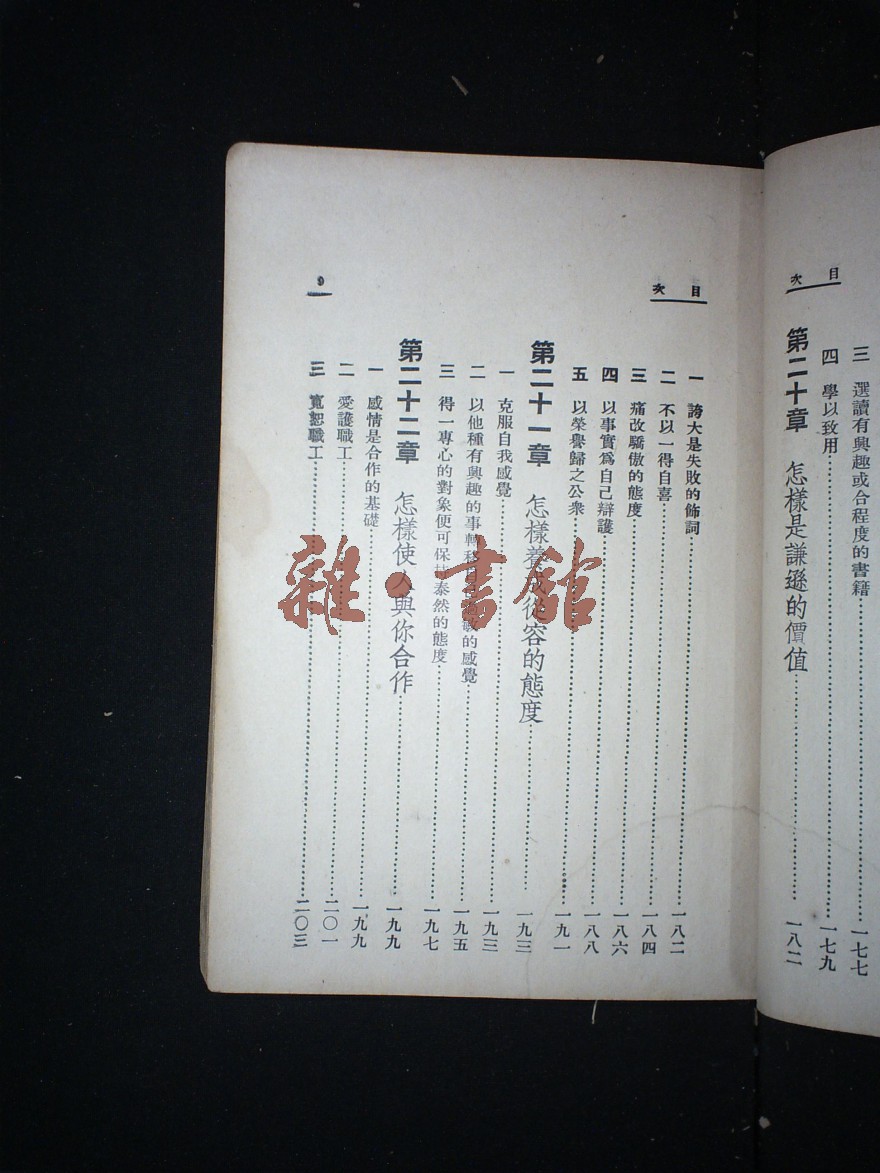 目次
三 選讀有興趣或合程度的書籍……一七七
四 學以致用……一七九
第二十章 怎樣是謙遜的價值……一八二
目次
一 誇大是失敗的飾詞……一八二
二 不以一得自喜……一八四
三 痛改驕傲的態度……一八六
四 以事實爲自己辯護……一八八
五 以榮譽歸之公衆……一九一
第二十一章 怎樣養成從容的態度……一九三
一 克服自我感覺……一九三
二 以他種有興趣的事轉移 的感覺……一九五
三 得一專心的對象便可保持泰然的態度……一九七
第二十二章 怎樣使人與你合作……一九九
一 感情是合作的基礎……一九九
二 愛護職工……二〇一
三 寬恕職工……二〇三
9
雜·書館